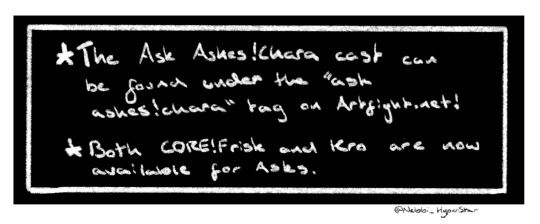 * The Ask Ashes!Chara cast can
be found under the "ask
ashes!chara" tag on Artfight.net!
* Both CORE!Frisk and Kro are now
available for Asks.